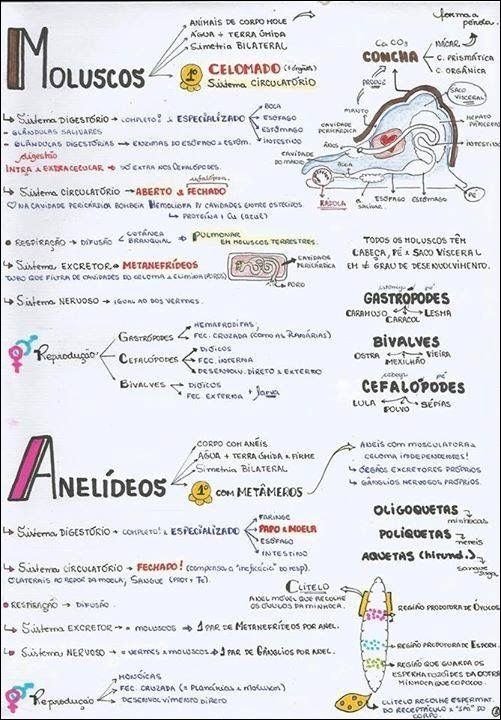 MOLUSCOS
ANIMAIS DE CORPO MOLE
ÁGUA + TERRA ÚMIDA
Simetria BILATERAL
1º CELOMADO (+órgãos)
Sistema CIRCULATÓRIO
forma a pérola
CaCO3
NÁCAR
CONCHA
C. PRISMÁTICA
C. ORGÂNICA
PRODUZ
MANTO
SACO VISCERAL
CAVIDADE PERICÁRDICA
HEPATO PÂNCREAS
INTESTINO
ÂNUS
CAVIDADE DO MANTO
BOCA
RÁDULA
G. SALIVAR
ESÔFAGO
ESTÔMAGO
PÉ
Sistema DIGESTÓRIO → COMPLETO! & ESPECIALIZADO
BOCA
ESÔFAGO
ESTÔMAGO
INTESTINO
- GLÂNDULAS SALIVARES
- GLÂNDULAS DIGESTÓRIAS → ENZIMAS DO ESÔFAGO & ESTÔM.
digestão
INTRA & EXTRACELULAR → SÓ EXTRA NOS CEFALÓPODES.
cefalópodes
Sistema CIRCULATÓRIO → ABERTO & FECHADO
♡ NA CAVIDADE PERICÁRDICA BOMBEIA HEMOLINFA P/ CAVIDADES ENTRE OS TECIDOS.
PROTEÍNA + Cu (azul)
RESPIRAÇÃO → DIFUSÃO
CUTÂNEA
BRANQUIAL
PULMONAR
EM MOLUSCOS TERRESTRES.
Sistema EXCRETOR → METANEFRÍDEOS
TUBO QUE FILTRA DE CAVIDADES DO CELOMA & ELIMINA (POROS)
CAVIDADE PERICÁRDICA
PORO
Sistema NERVOSO → IGUAL AO DOS VERMES.
TODOS OS MOLUSCOS TÊM
CABEÇA, PÉ & SACO VISCERAL
EM ≠ GRAU DE DESENVOLVIMENTO.
estômago pé
GASTRÓPODES
CARAMUJO
LESMA
CARACOL
BIVALVES
OSTRA
VIEIRA
MEXILHÃO
cabeça pé
CEFALÓPODES
LULA
SÉPIAS
POLVO
Reprodução
GASTRÓPODES
HEMAFRODITAS,
FEC. CRUZADA (COMO AS PLANÁRIAS)
CEFALÓPODES
DIÓICOS
FEC. INTERNA
DESENVOLV. DIRETO & EXTERNO
BIVALVES
DIÓICOS
FEC EXTERNA + larva
ANELÍDEOS
CORPO COM ANÉIS
ÁGUA + TERRA ÚMIDA & FIRME
Simetria BILATERAL
1º COM METÂMEROS
ANÉIS COM MUSCULATURA &
CELOMA INDEPENDENTES!
ÓRGÃOS EXCRETORES PRÓPRIOS
GÂNGLIOS NERVOSOS PRÓPRIOS.
Sistema DIGESTÓRIO → COMPLETO! & ESPECIALIZADO
FARINGE
PAPO & MOELA
ESÔFAGO
INTESTINO
OLIGOQUETAS
minhocas
POLIQUETAS
nereis
AQUETAS (hirund.)
sanguessuga
Sistema CIRCULATÓRIO → FECHADO! (compensa a "ineficácia" do resp).
CLITELO
ANEL MÓVEL QUE RECOLHE
OS ÓVULOS DA MINHOCA.
RESPIRAÇÃO → DIFUSÃO.
Sistema EXCRETOR → = MOLUSCOS → 1 PAR DE METANEFRÍDEOS POR ANEL.
Sistema NERVOSO → = VERMES & MOLUSCOS → 1 PAR DE GÂNGLIOS POR ANEL.
REGIÃO PRODUTORA DE ÓVULOS
REGIÃO PRODUTORA DE ESPERM.
REGIÃO QUE GUARDA OS
ESPERMATOZÓIDES DA OUTRA
MINHOCA QUE COPULOU.
CLITELO RECOLHE ESPERMAT.
DO RECEPTÁCULO & "SAI" DO
CORPO.
Reprodução
MONÓICAS
FEC. CRUZADA (= PLANÁRIAS & MOLUSCOS)
DESENVOLVIMENTO DIRETO